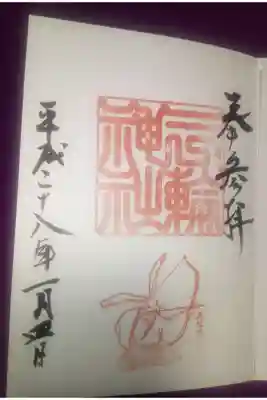 奉参拝
三輪神社
平成二十八年一月四日